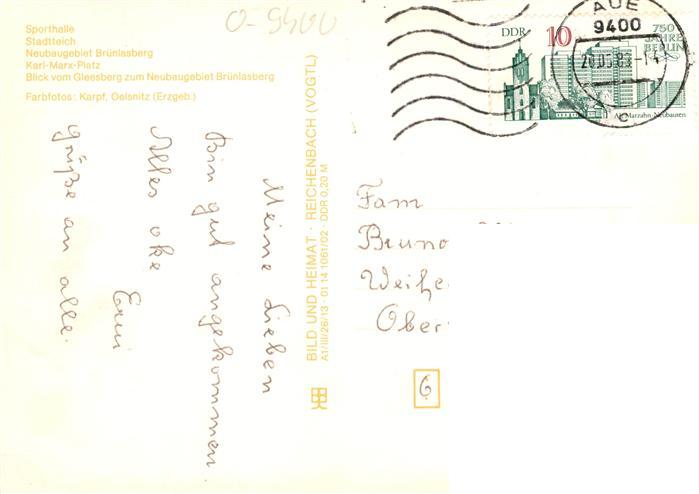 O-9400
Sporthalle
Stadtteich
Neubaugebiet Brünlasberg
Karl-Marx-Platz
Blick vom Gleesberg zum Neubaugebiet Brünlasberg
Farbfotos: Karpf, Oelsnitz (Erzgeb.)
Meine Lieben
Bin gut angekommen
Alles oke
Erni
grüße an alle.
BILD UND HEIMAT · REICHENBACH (VOGTL)
A1/III/26/13 · 01 14 1061/02 · DDR 0,20 M
DDR 10
750 JAHRE BERLIN
Marzahn Neubauten
AUE
9400
c
Fam
Bruno
Weihe
Ober
6